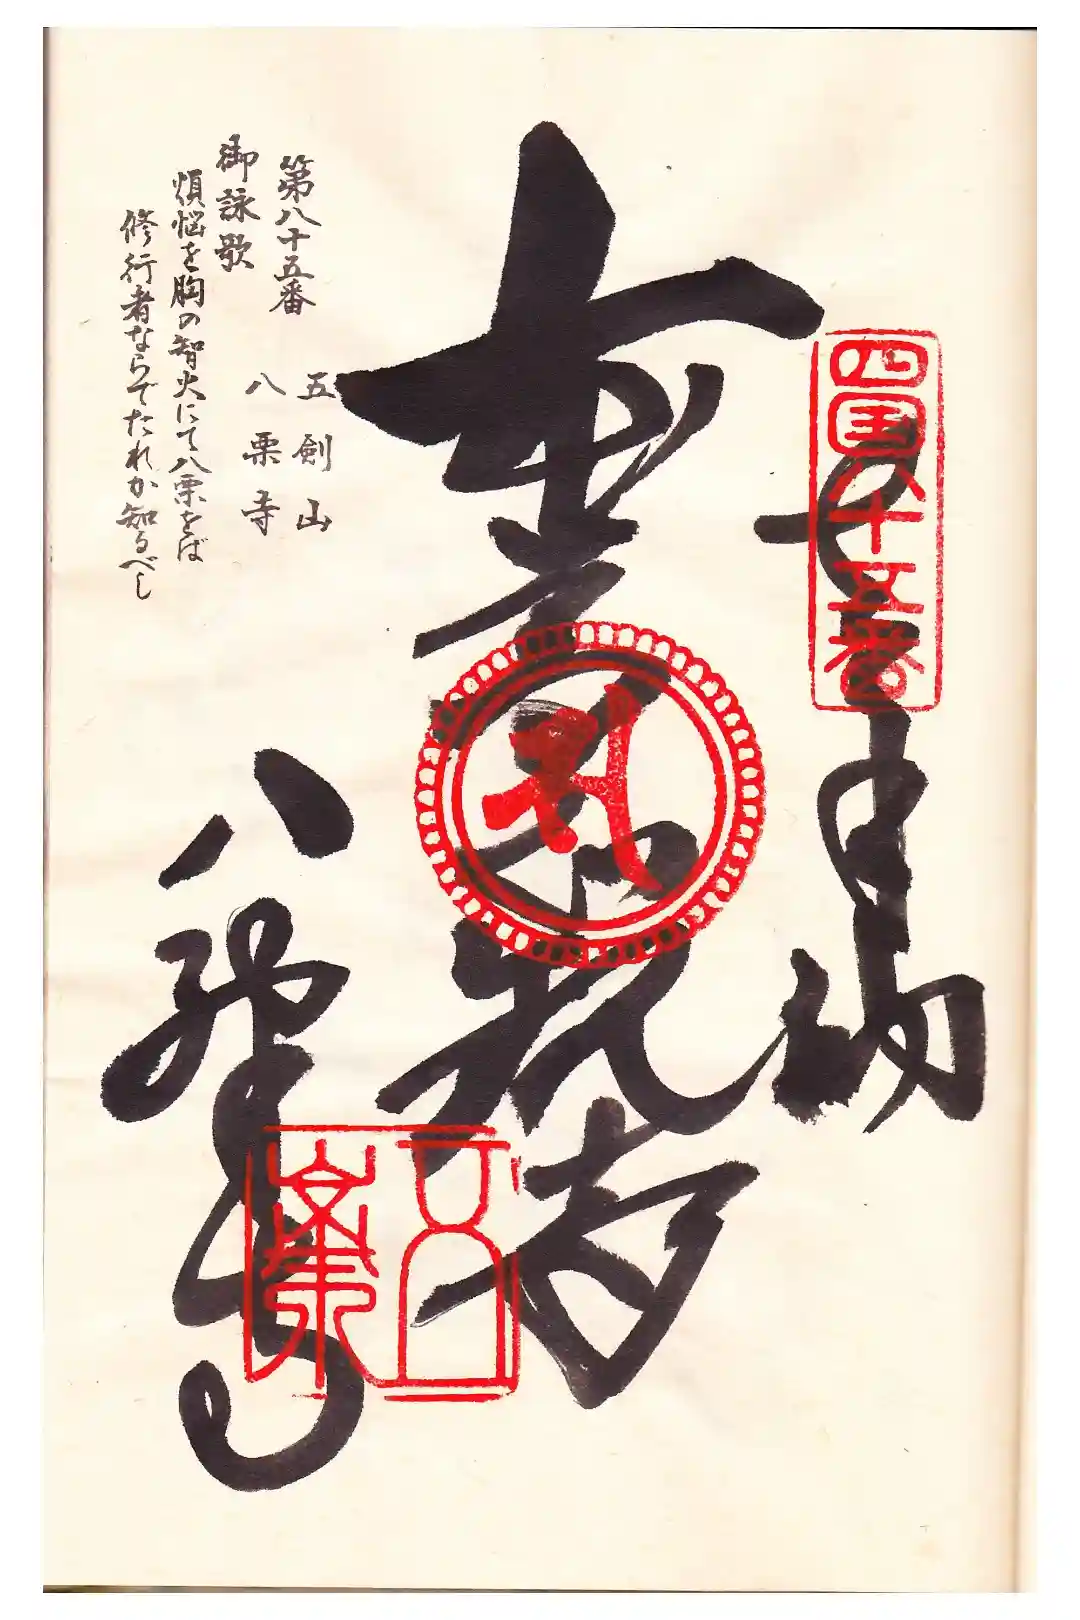 四国八十五番
奉納
八栗寺
第八十五番
五剣山
八栗寺
御詠歌
煩悩を胸の智火にて八栗をば
修行者ならでたれか知るべし